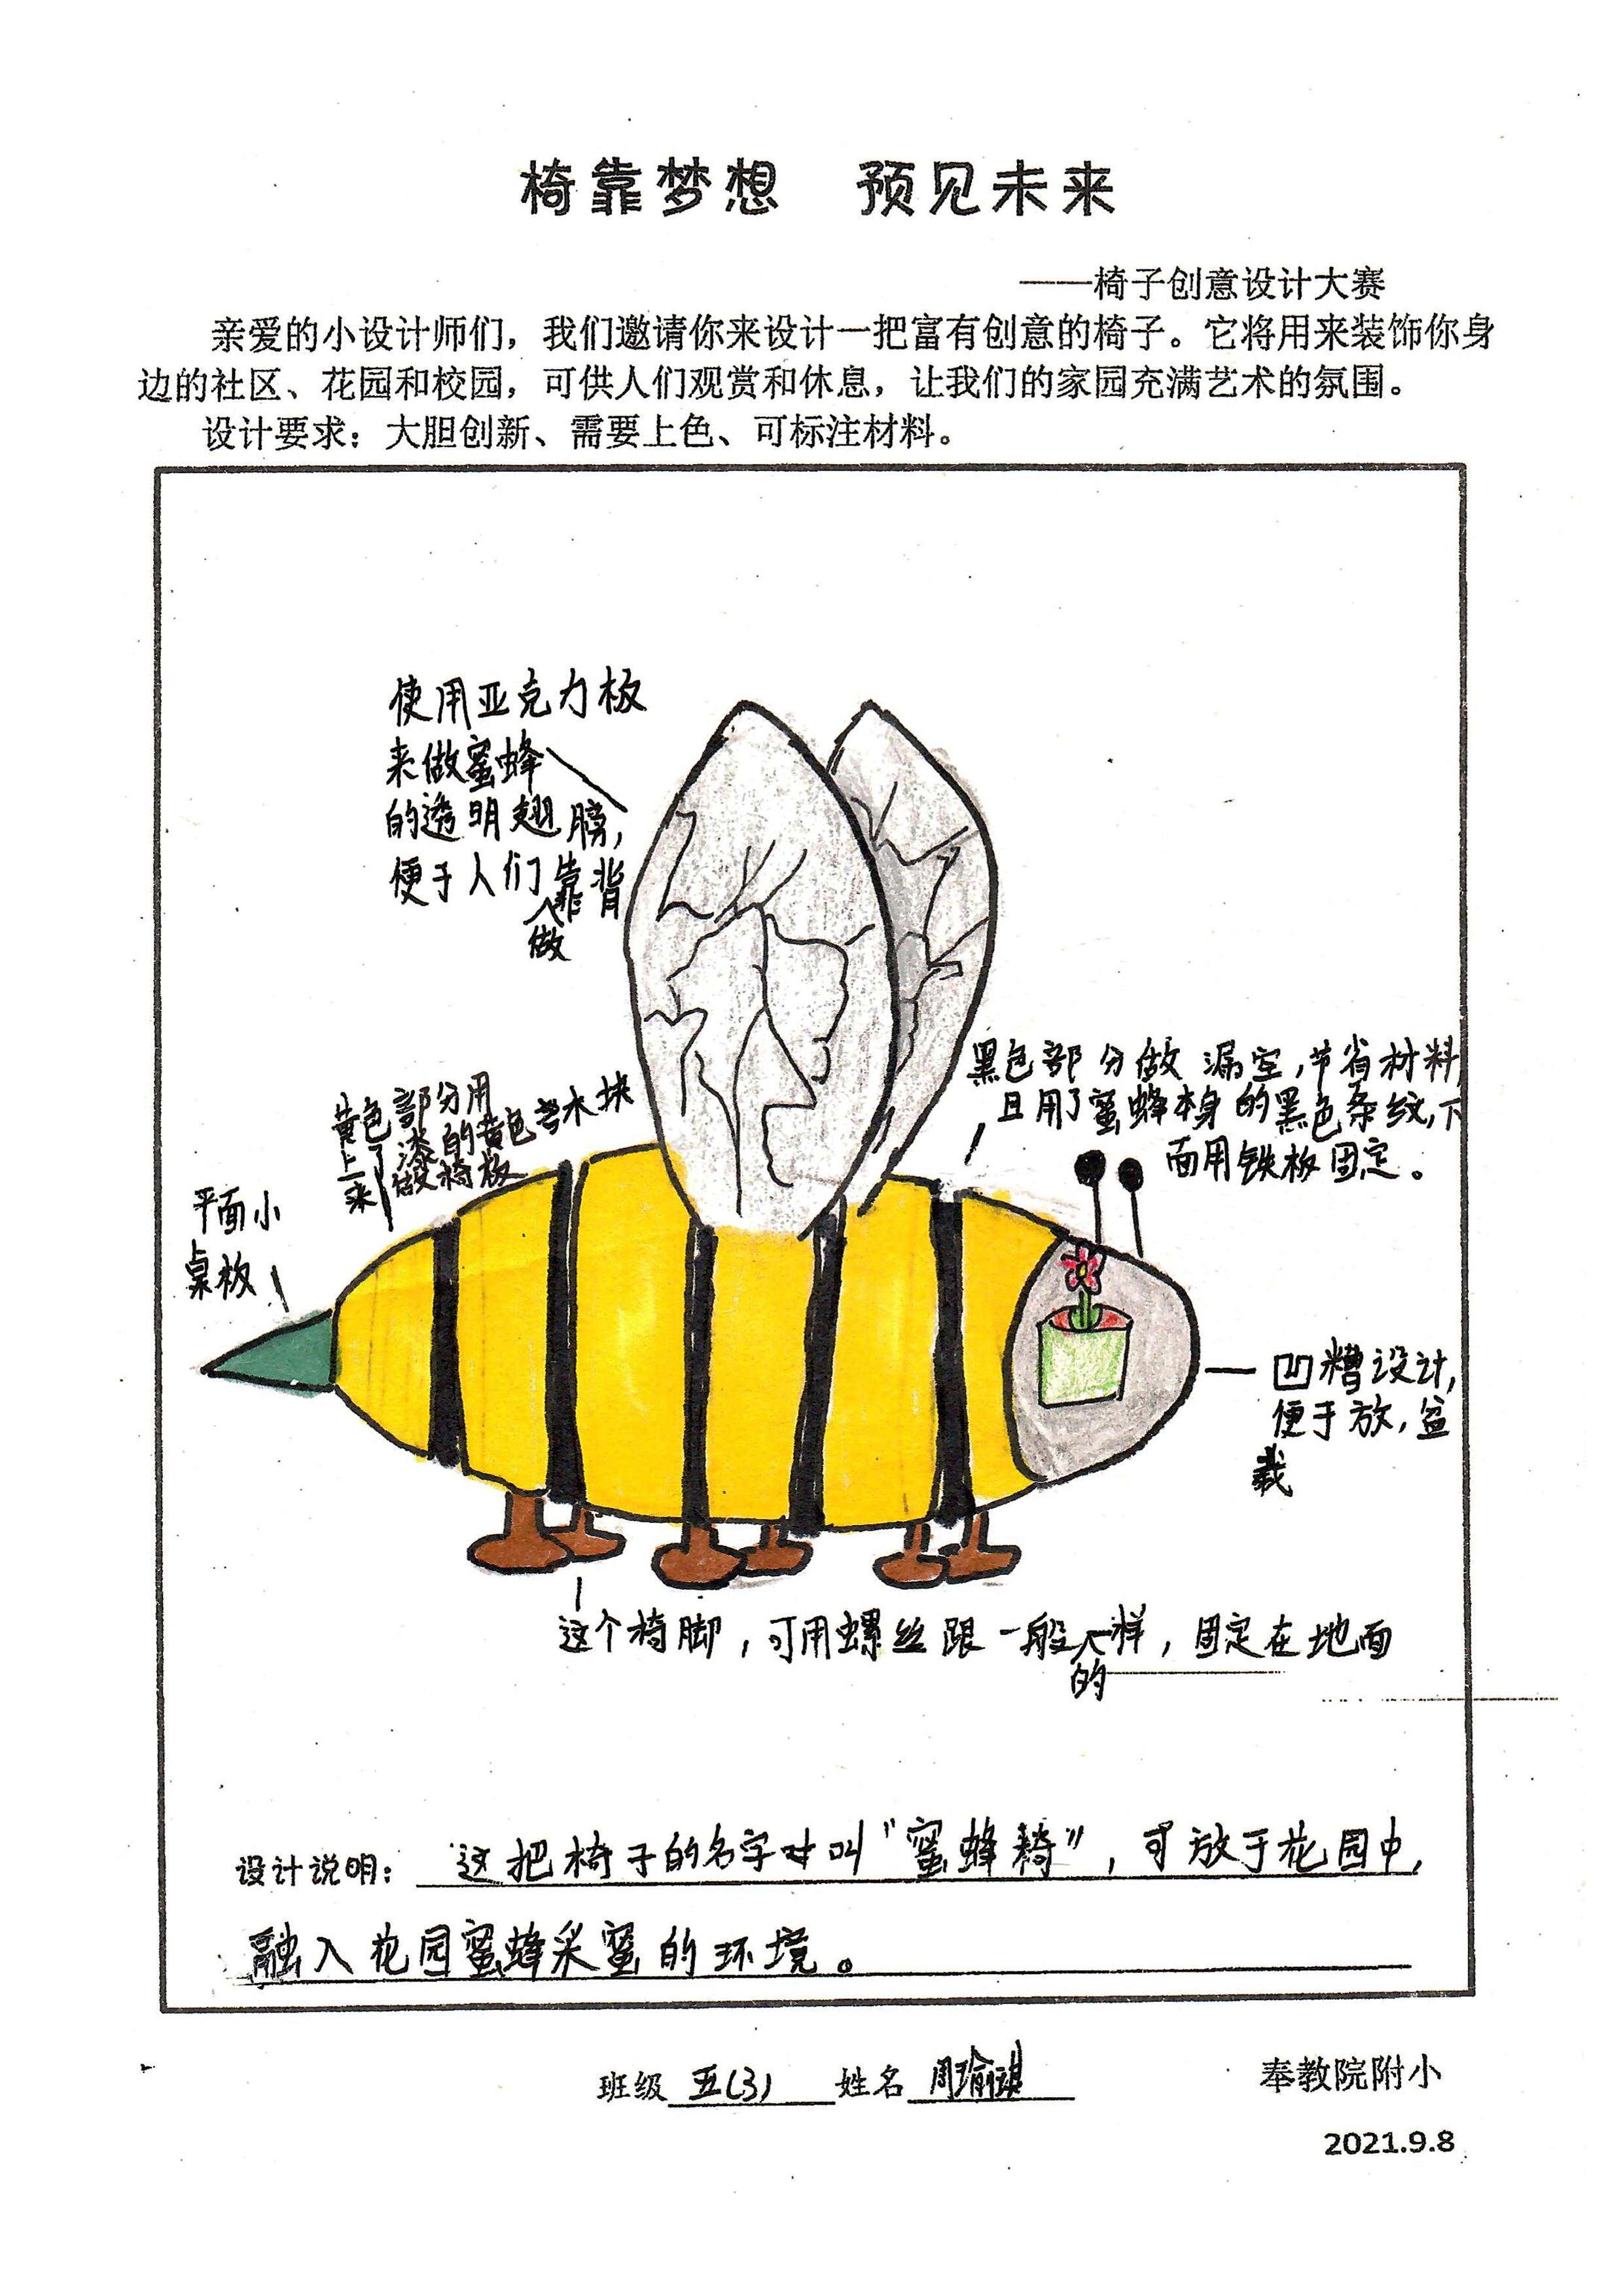 椅靠梦想 预见未来
——椅子创意设计大赛
亲爱的小设计师们，我们邀请你来设计一把富有创意的椅子。它将用来装饰你身
边的社区、花园和校园，可供人们观赏和休息，让我们的家园充满艺术的氛围。
设计要求：大胆创新、需要上色、可标注材料。
使用亚克力板
来做蜜蜂
的透明翅膀，
便于人们做靠背
黑色部分做漏空，节省材料
且用了蜜蜂本身的黑色条纹，下
面用铁板固定。
黄色部分用
上了漆的黄色 木块
来做椅板
平面小
桌板
凹糟设计，
便于放，盆
栽
这个椅脚，可用螺丝跟一般的一样，固定在地面
设计说明：这把椅子的名字叫“蜜蜂椅”，可放于花园中，
融入花园蜜蜂采蜜的环境。
班级 五(3) 姓名 周瑜
奉教院附小
2021.9.8